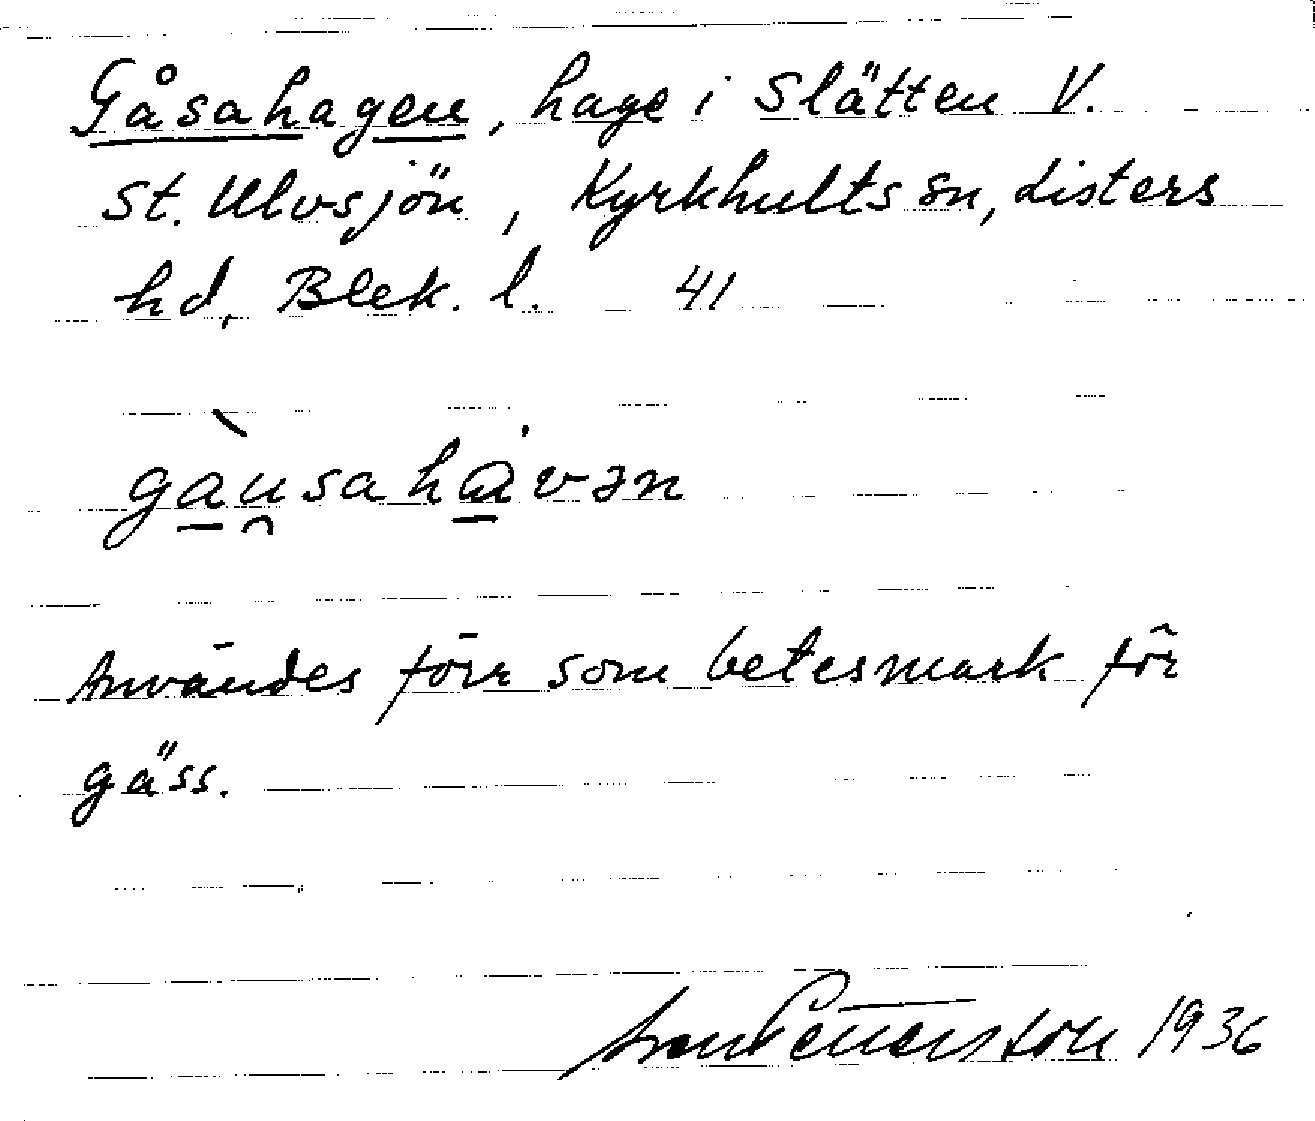 Gåsahagen, hage i Slätten V.
St. Ulvsjön, Kyrkhults sn, Listers
hd, Blek. l. 41
gàu̯sahávən
Användes förr som betesmark för
gäss.
Pettersson 1936